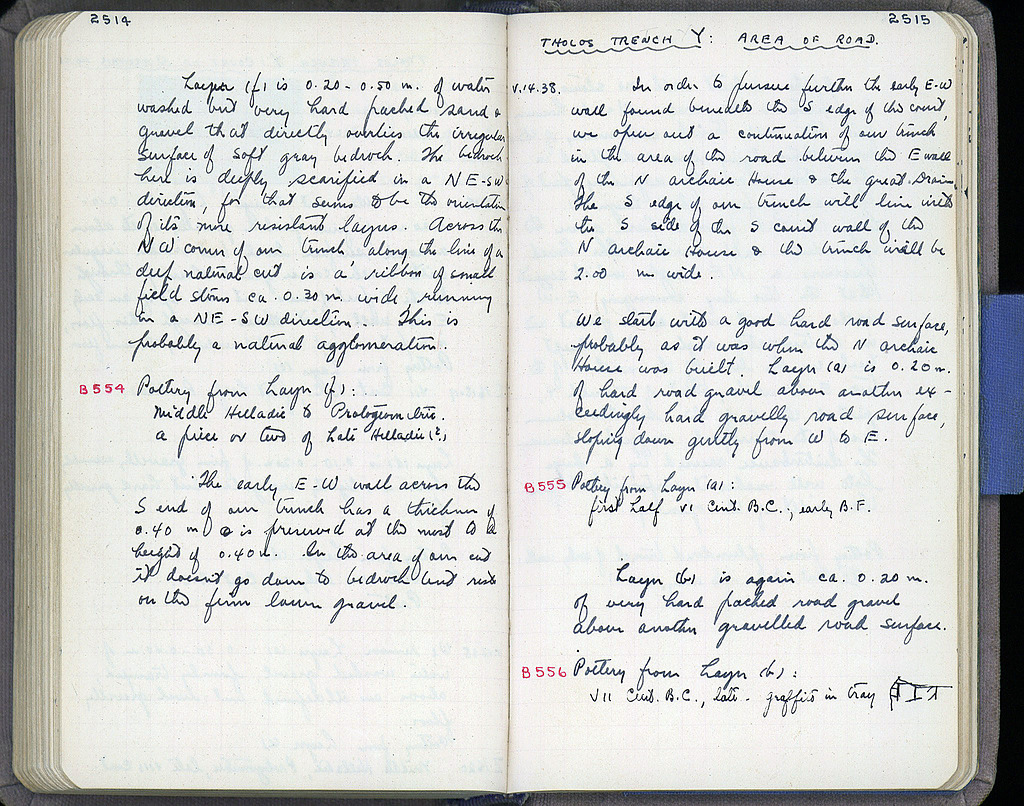 2514
Layer (f) is 0.20 - 0.50 m. of water
washed but very hard packed sand &
gravel that directly overlies the irregular
surface of soft gray bedrock. The bedrock
here is deeply scarified in a NE-SW
direction, for that seems to be the orientation
of its more resistant layers. Across the
NW corner of our trench along the line of a
deep natural cut is a ribbon of small
field stones ca. 0.30 m. wide, running
in a NE-SW direction. This is
probably a natural agglomeration.
B554 Pottery from Layer (f):
Middle Helladic to Protogeometric.
a piece or two of Late Helladic (?)
The early E-W wall across the
S end of our trench has a thickness of
0.40 m & is preserved at the most to a
height of 0.40 m. In the area of our cut
it doesn't go down to bedrock but rests
on the firm lower gravel.
2515
THOLOS TRENCH Y: AREA OF ROAD.
V.14.38. In order to pursue further the early E-W
wall found beneath the S edge of the court,
we open out a continuation of our trench
in the area of the road between the E wall
of the N archaic House & the great Drain.
The S edge of our trench will line with
the S side of the S court wall of the
N archaic House & the trench will be
2.00 m wide.
We start with a good hard road surface,
probably as it was when the N archaic
House was built. Layer (a) is 0.20 m.
of hard road gravel above another ex-
ceedingly hard gravelly road surface,
sloping down gently from W to E.
B555 Pottery from Layer (a):
first half VI Cent. B.C., early B.F.
Layer (b) is again ca. 0.20 m.
of very hard packed road gravel
above another gravelled road surface.
B556 Pottery from Layer (b):
VII Cent. B.C., late. graffito in tray